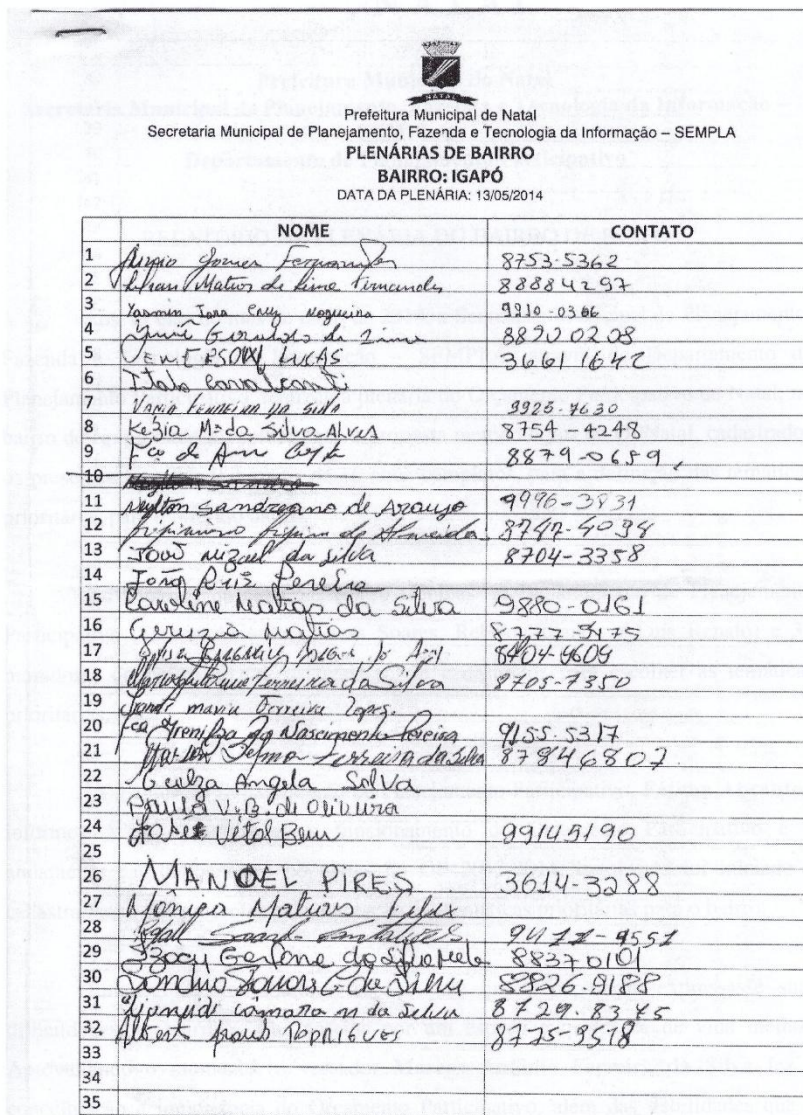 NATAL
Prefeitura Municipal de Natal
Secretaria Municipal de Planejamento, Fazenda e Tecnologia da Informação – SEMPLA
PLENÁRIAS DE BAIRRO
BAIRRO: IGAPÓ
DATA DA PLENÁRIA: 13/05/2014
NOME CONTATO
1 Fernandes 8753-5362
2 Lilian Matias de Lima Fernandes 88884297
3 Yasmin Iara Cruz Nogueira 9910-0366
4 de Lima 8890 0208
5 LUKAS 3661 1642
6 Italo Cavalcanti
7 VANIA FERREIRA DA SILVA 9925-7630
8 Kezia Mª da Silva Alves 8754-4248
9 Fco de 8879-0659
10
11 Neylton Sandreano de Araujo 9996-3831
12 de Almeida 8747-4094
13 João Mizael da Silva 8704-3358
14 João Luiz Pereira
15 Caroline Matias da Silva 9880-0161
16 Geruzia Matias 8777-3475
17 8704-6604
18 Ferreira da Silva 8705-7350
19 maria Ferreira Lopes
20 Fca Irenilza do Nascimento Pereira 9155-5317
21 Ferreira da Silva 87846807
22 Angela Silva
23 Paula V. B. de Oliveira
24 José Vital Beu 99145190
25
26 MANOEL PIRES 3614-3288
27 Mônica Matias Felix
28 9411-9551
29 Gerlane da Silva 88370101
30 Sandra da Silva 8826-9188
31 câmara m da Silva 8729.8375
32 Albert Paulo RODRIGUES 8775-9518
33
34
35